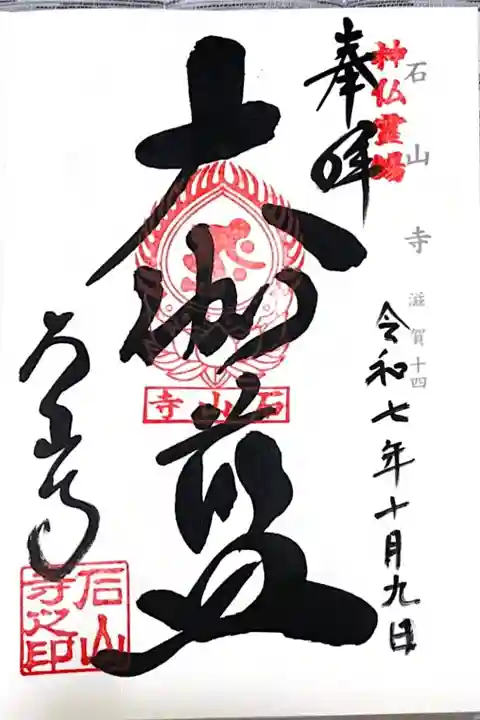 神仏霊場
石山寺 滋賀十四
奉拝
令和七年十月九日
大伽藍
石山寺
石山寺
石山寺之印